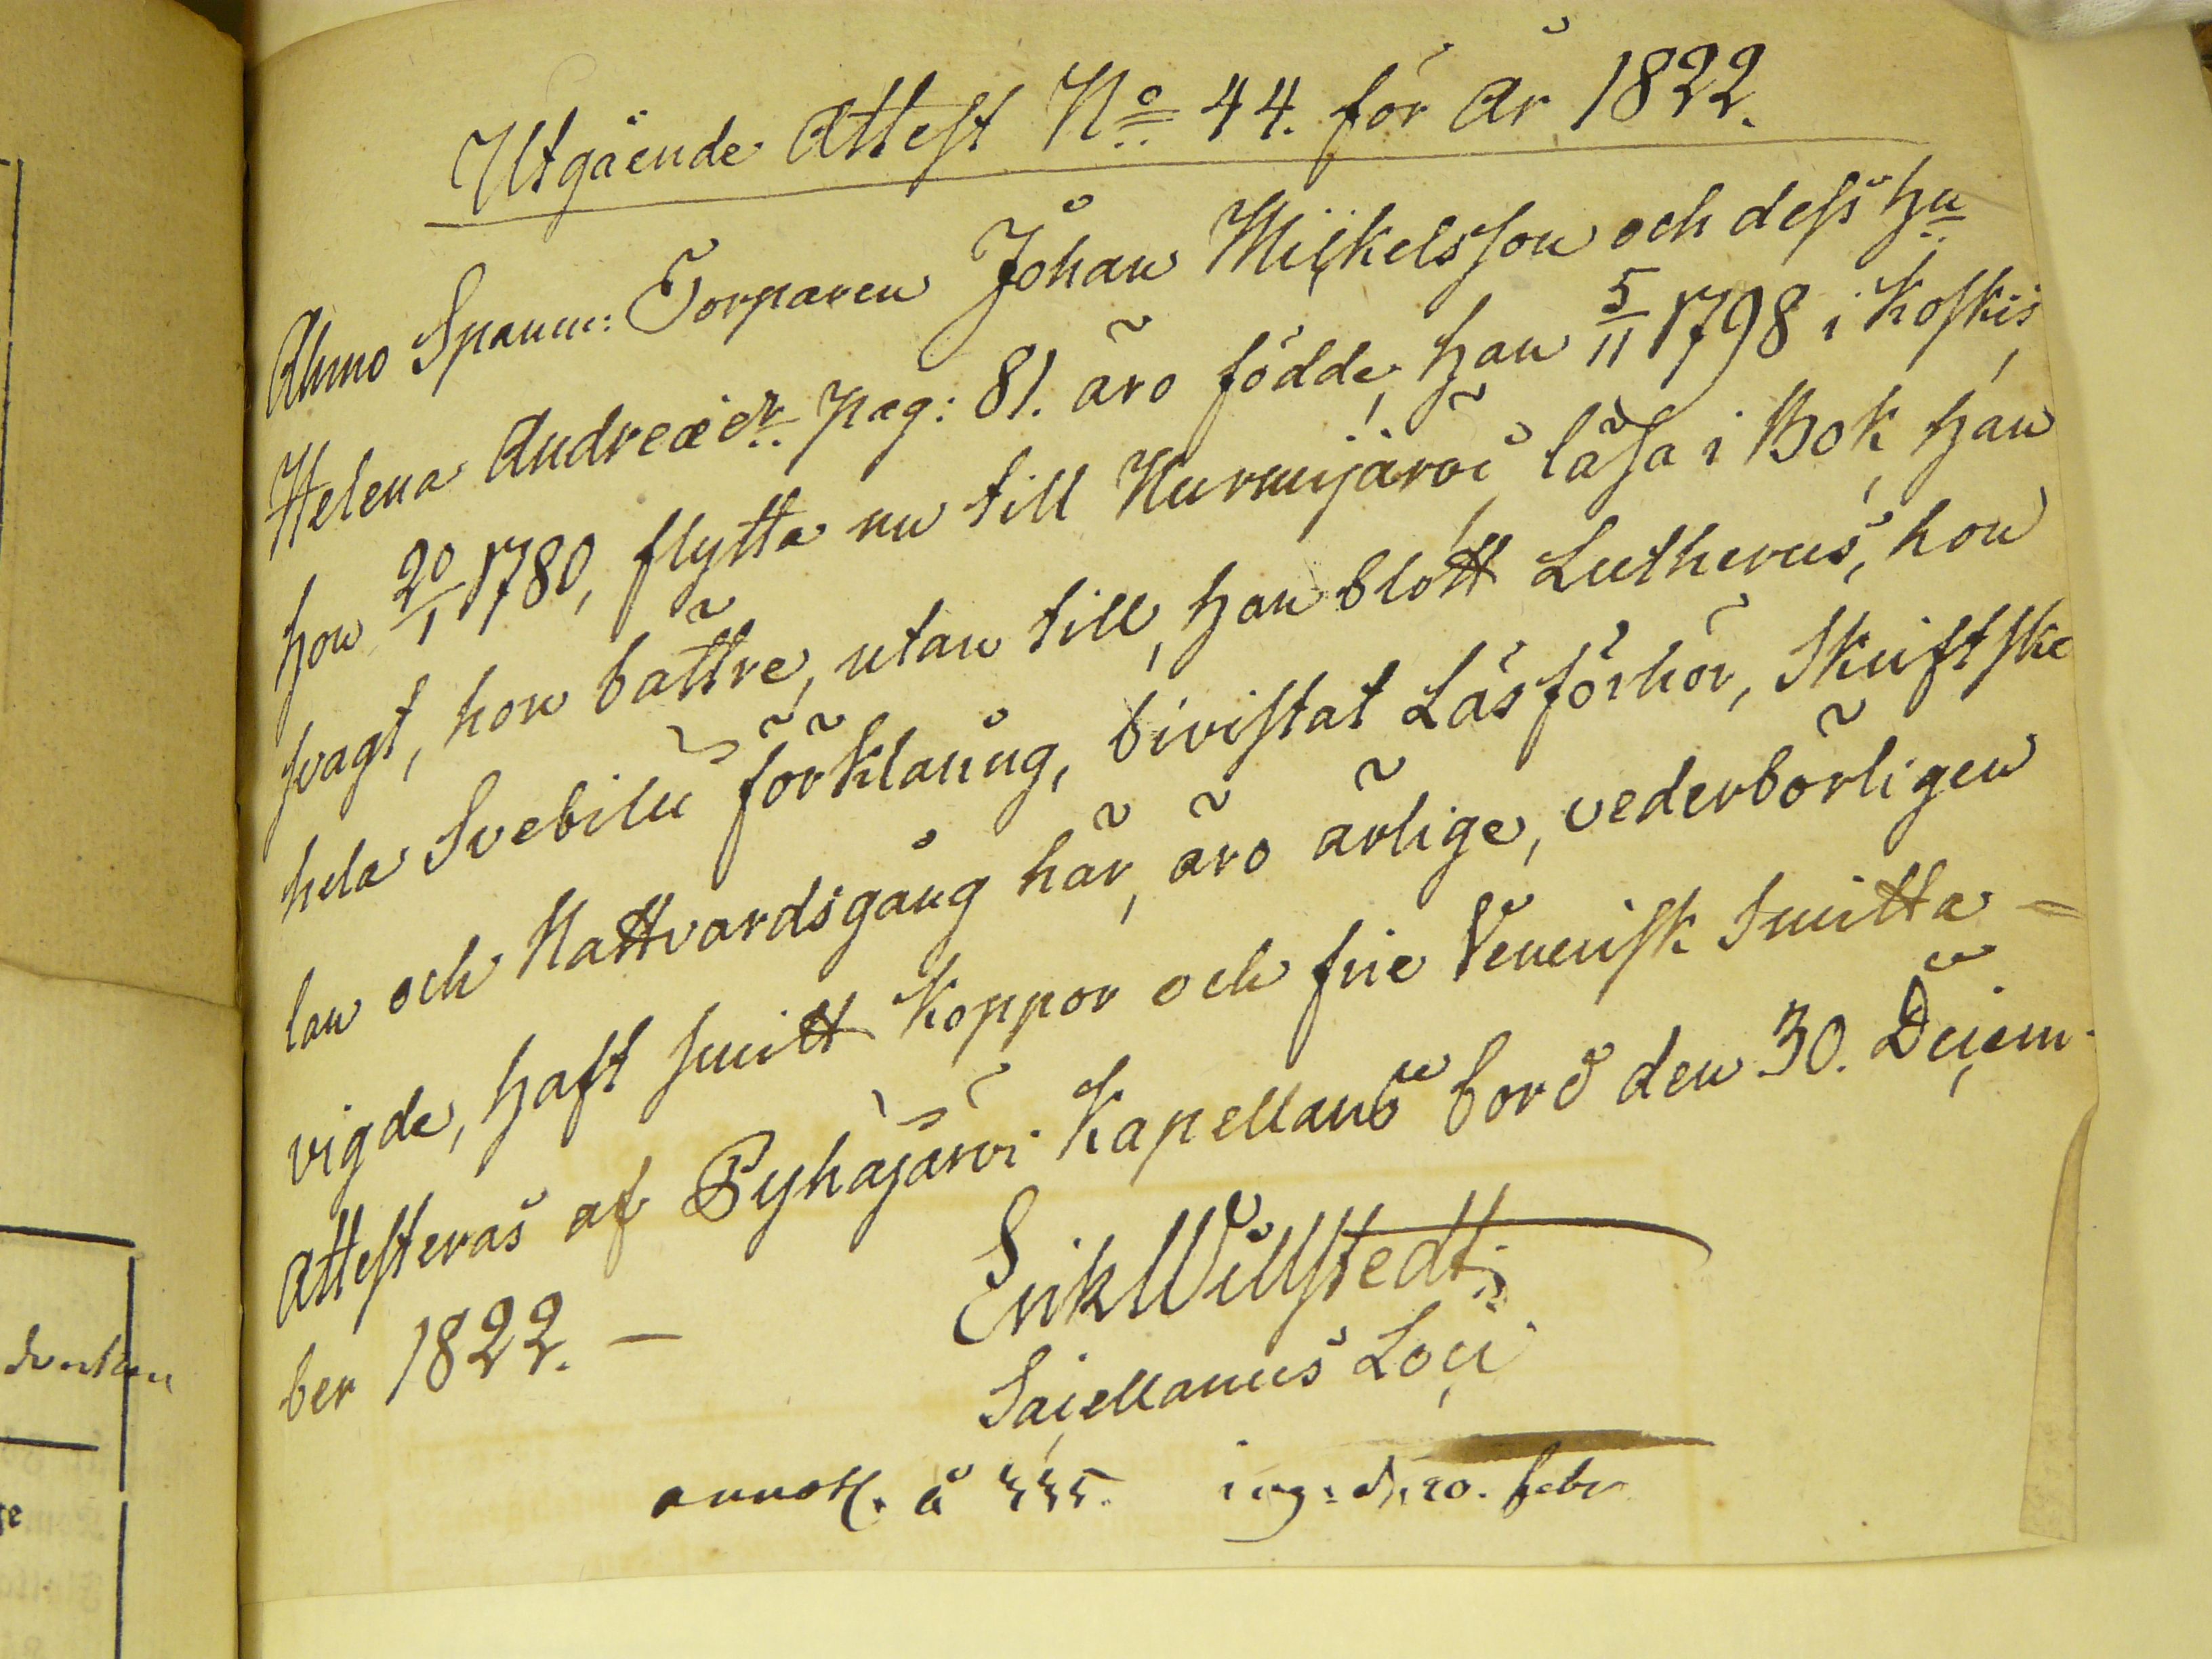 Utgående Attest No 44. för år 1822.
Ahmo Spanm: Torparen Johan Mickelsson och dess hu
Helena Andreæ dr. pag: 81. äro födde, han 5/11 1798 i Koskis,
hon 20/1 1780, flytta nu till Nurmijärvi, läsa i Bok, han
svagt, hon bättre, utan till, han blott Lutherus, hon
hela Svebilii förklaring, bivistat Läsförhör, Skriftska
lan och Nattvardsgång här, äro ärlige, vederbörligen
vigde, haft smitt koppor och frie Venerisk Smitta –
attesteras af Pyhäjärvi Kapellans bord den 30. Decem-
ber 1822. –
Erik Willstedt,
Sacellanus Loci
annot. å 335. ing: d. 20. febr
dentsen